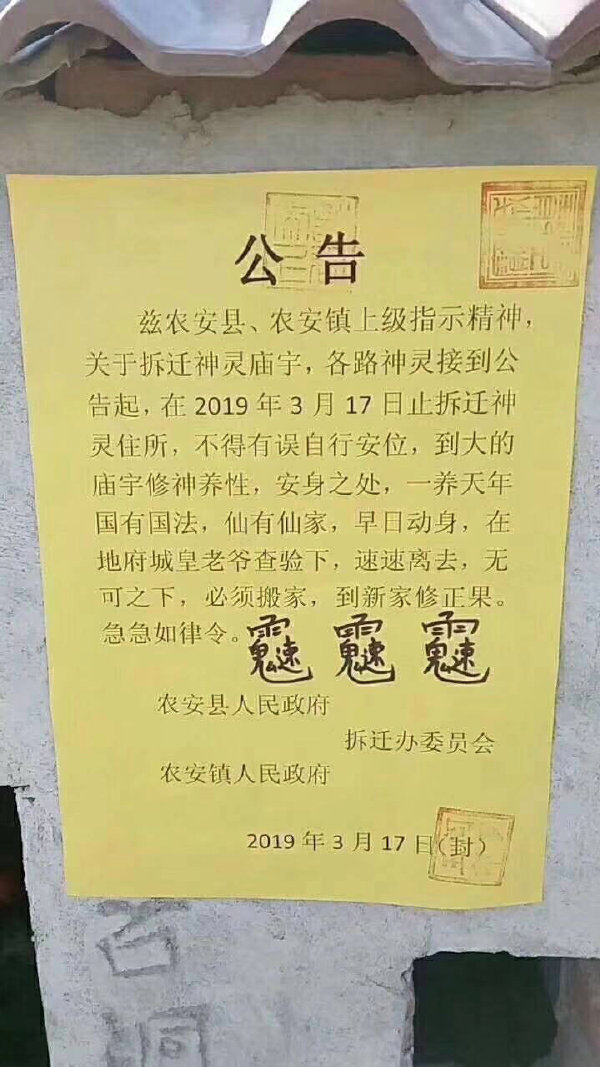 公告
兹农安县、农安镇上级指示精神，
关于拆迁神灵庙宇，各路神灵接到公
告起，在 2019 年 3 月 17 日止拆迁神
灵住所，不得有误自行安位，到大的
庙宇修神养性，安身之处，一养天年
国有国法，仙有仙家，早日动身，在
地府城皇老爷查验下，速速离去，无
可之下，必须搬家，到新家修正果。
急急如律令。
农安县人民政府
拆迁办委员会
农安镇人民政府
2019 年 3 月 17 日（封）